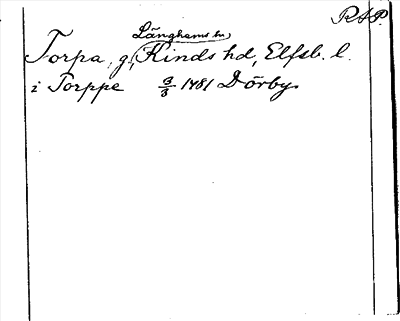 RAP.
Långhems sn,
Torpa, g., Kinds hd, Elfsb. l.
i Torppe 3/3 1481 Dörby